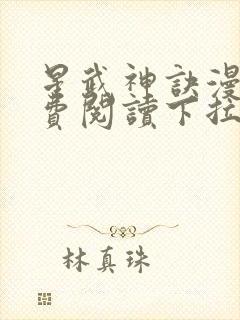 星武神訣漫
費閱讀下拉
林真珠